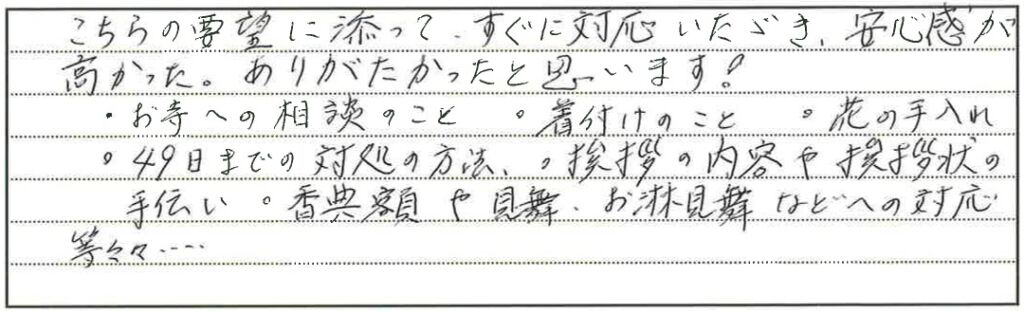 こちらの要望に添って、すぐに対応いただき、安心感が
高かった。ありがたかったと思います!
・お寺への相談のこと 。着付けのこと 。花の手入れ
。49日までの対処の方法、。挨拶の内容や挨拶状の
手伝い 。香典額や見舞、お淋見舞などへの対応
等々々……